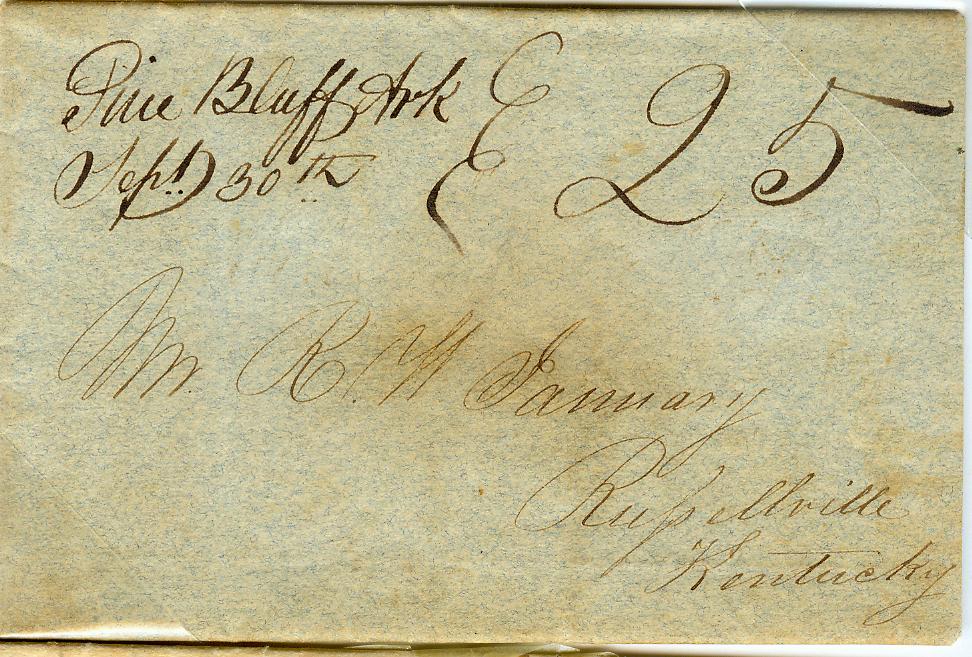 Pine Bluff Ark } 25
Sept 30th
Mr. R. W January
Rußellville
Kentucky